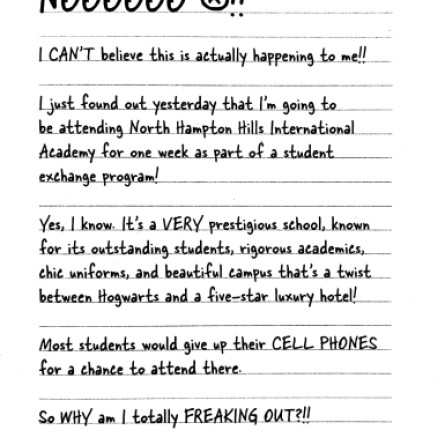 NOOOOOO ☹!!
I CAN'T believe this is actually happening to me!!
I just found out yesterday that I'm going to
be attending North Hampton Hills International
Academy for one week as part of a student
exchange program!
Yes, I know. It's a VERY prestigious school, known
for its outstanding students, rigorous academics,
chic uniforms, and beautiful campus that's a twist
between Hogwarts and a five-star luxury hotel!
Most students would give up their CELL PHONES
for a chance to attend there.
So WHY am I totally FREAKING OUT?!!